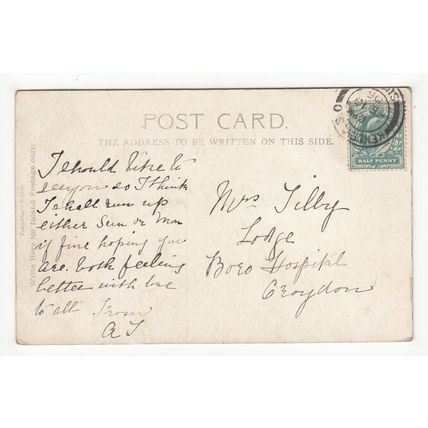 POST CARD.
THE ADDRESS TO BE WRITTEN ON THIS SIDE.
Write Here for Inland Postage only.
HALF PENNY
I should like to
see you so I think
I shall run up
either Sun or Mon
if fine hoping you
are both feeling
better with love
to all From
Mrs Tilby
Lodge
Boro Hospital
Croydon